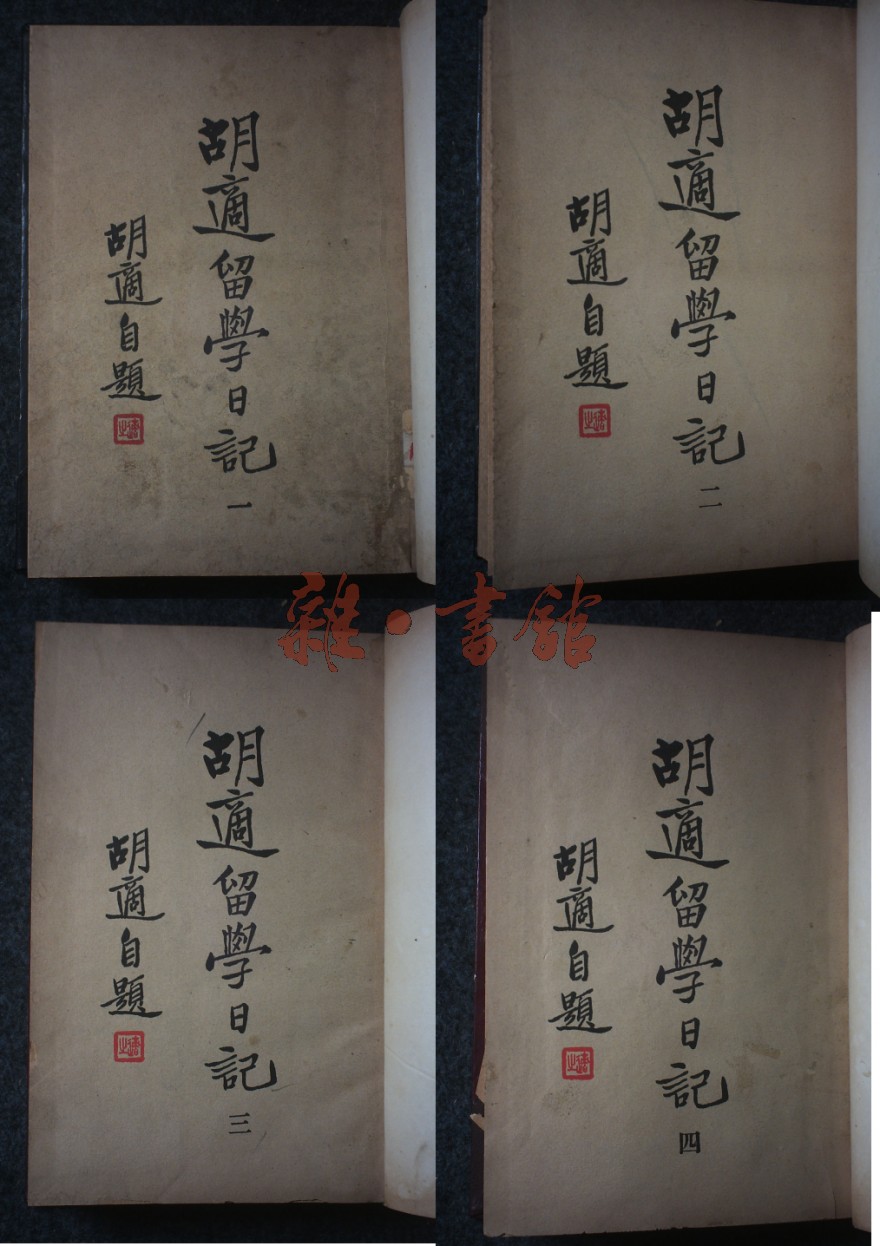 胡適留學日記
一
胡適自題
胡適留學日記
二
胡適自題
雜·書館
胡適留學日記
三
胡適自題
胡適留學日記
四
胡適自題